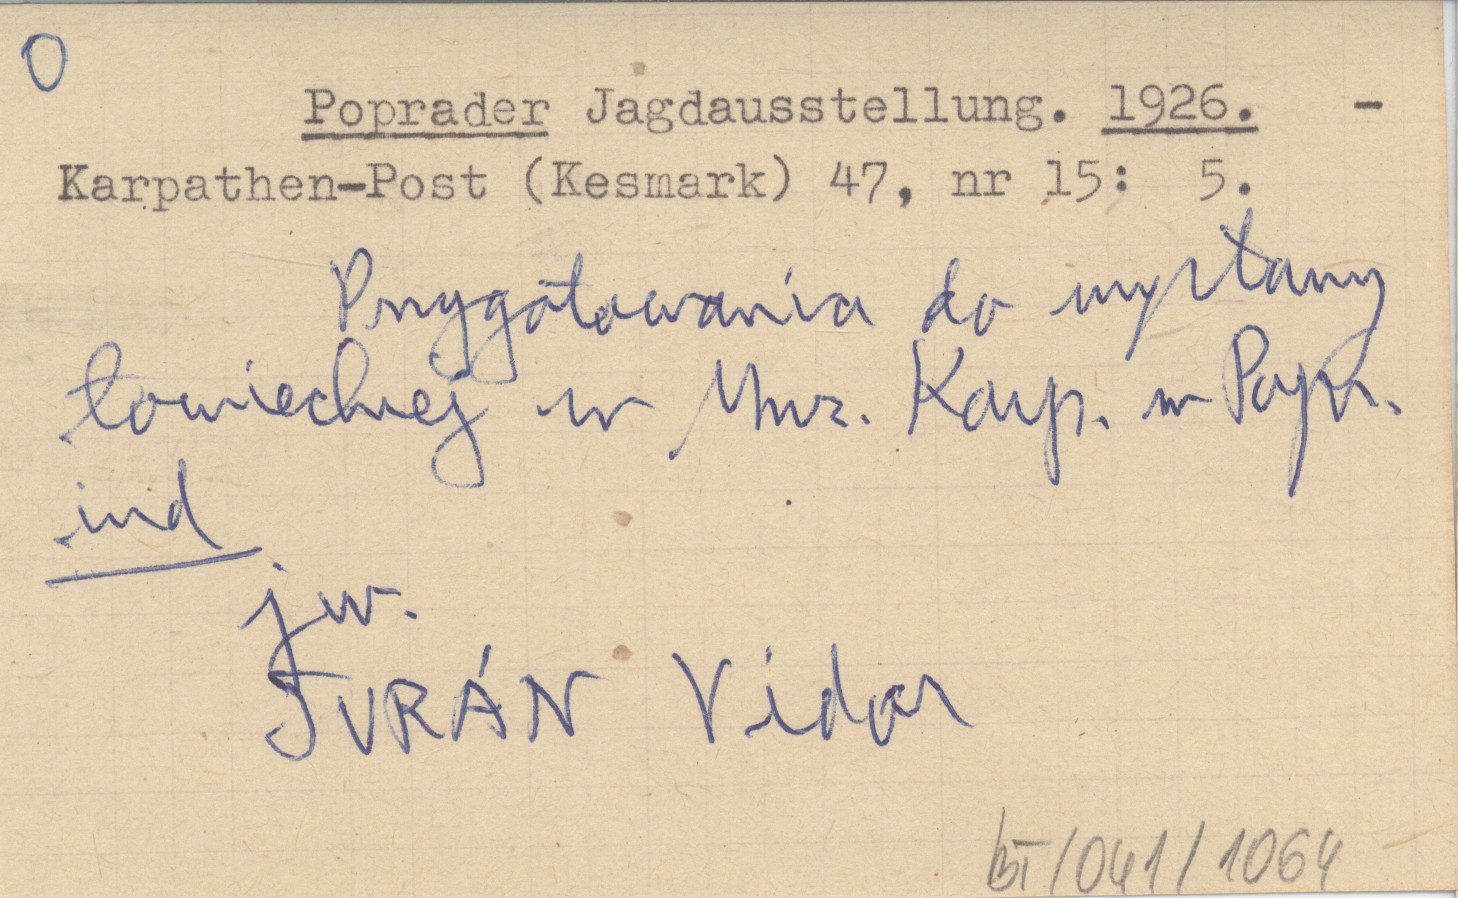 O
Poprader Jagdausstellung. 1926. -
Karpathen-Post (Kesmark) 47, nr 15: 5.
Przygotowania do wystawy
łowieckiej w Muz. Karp. w Popr.
ind
jw.
TURÁN Vidor
BT/041/1064